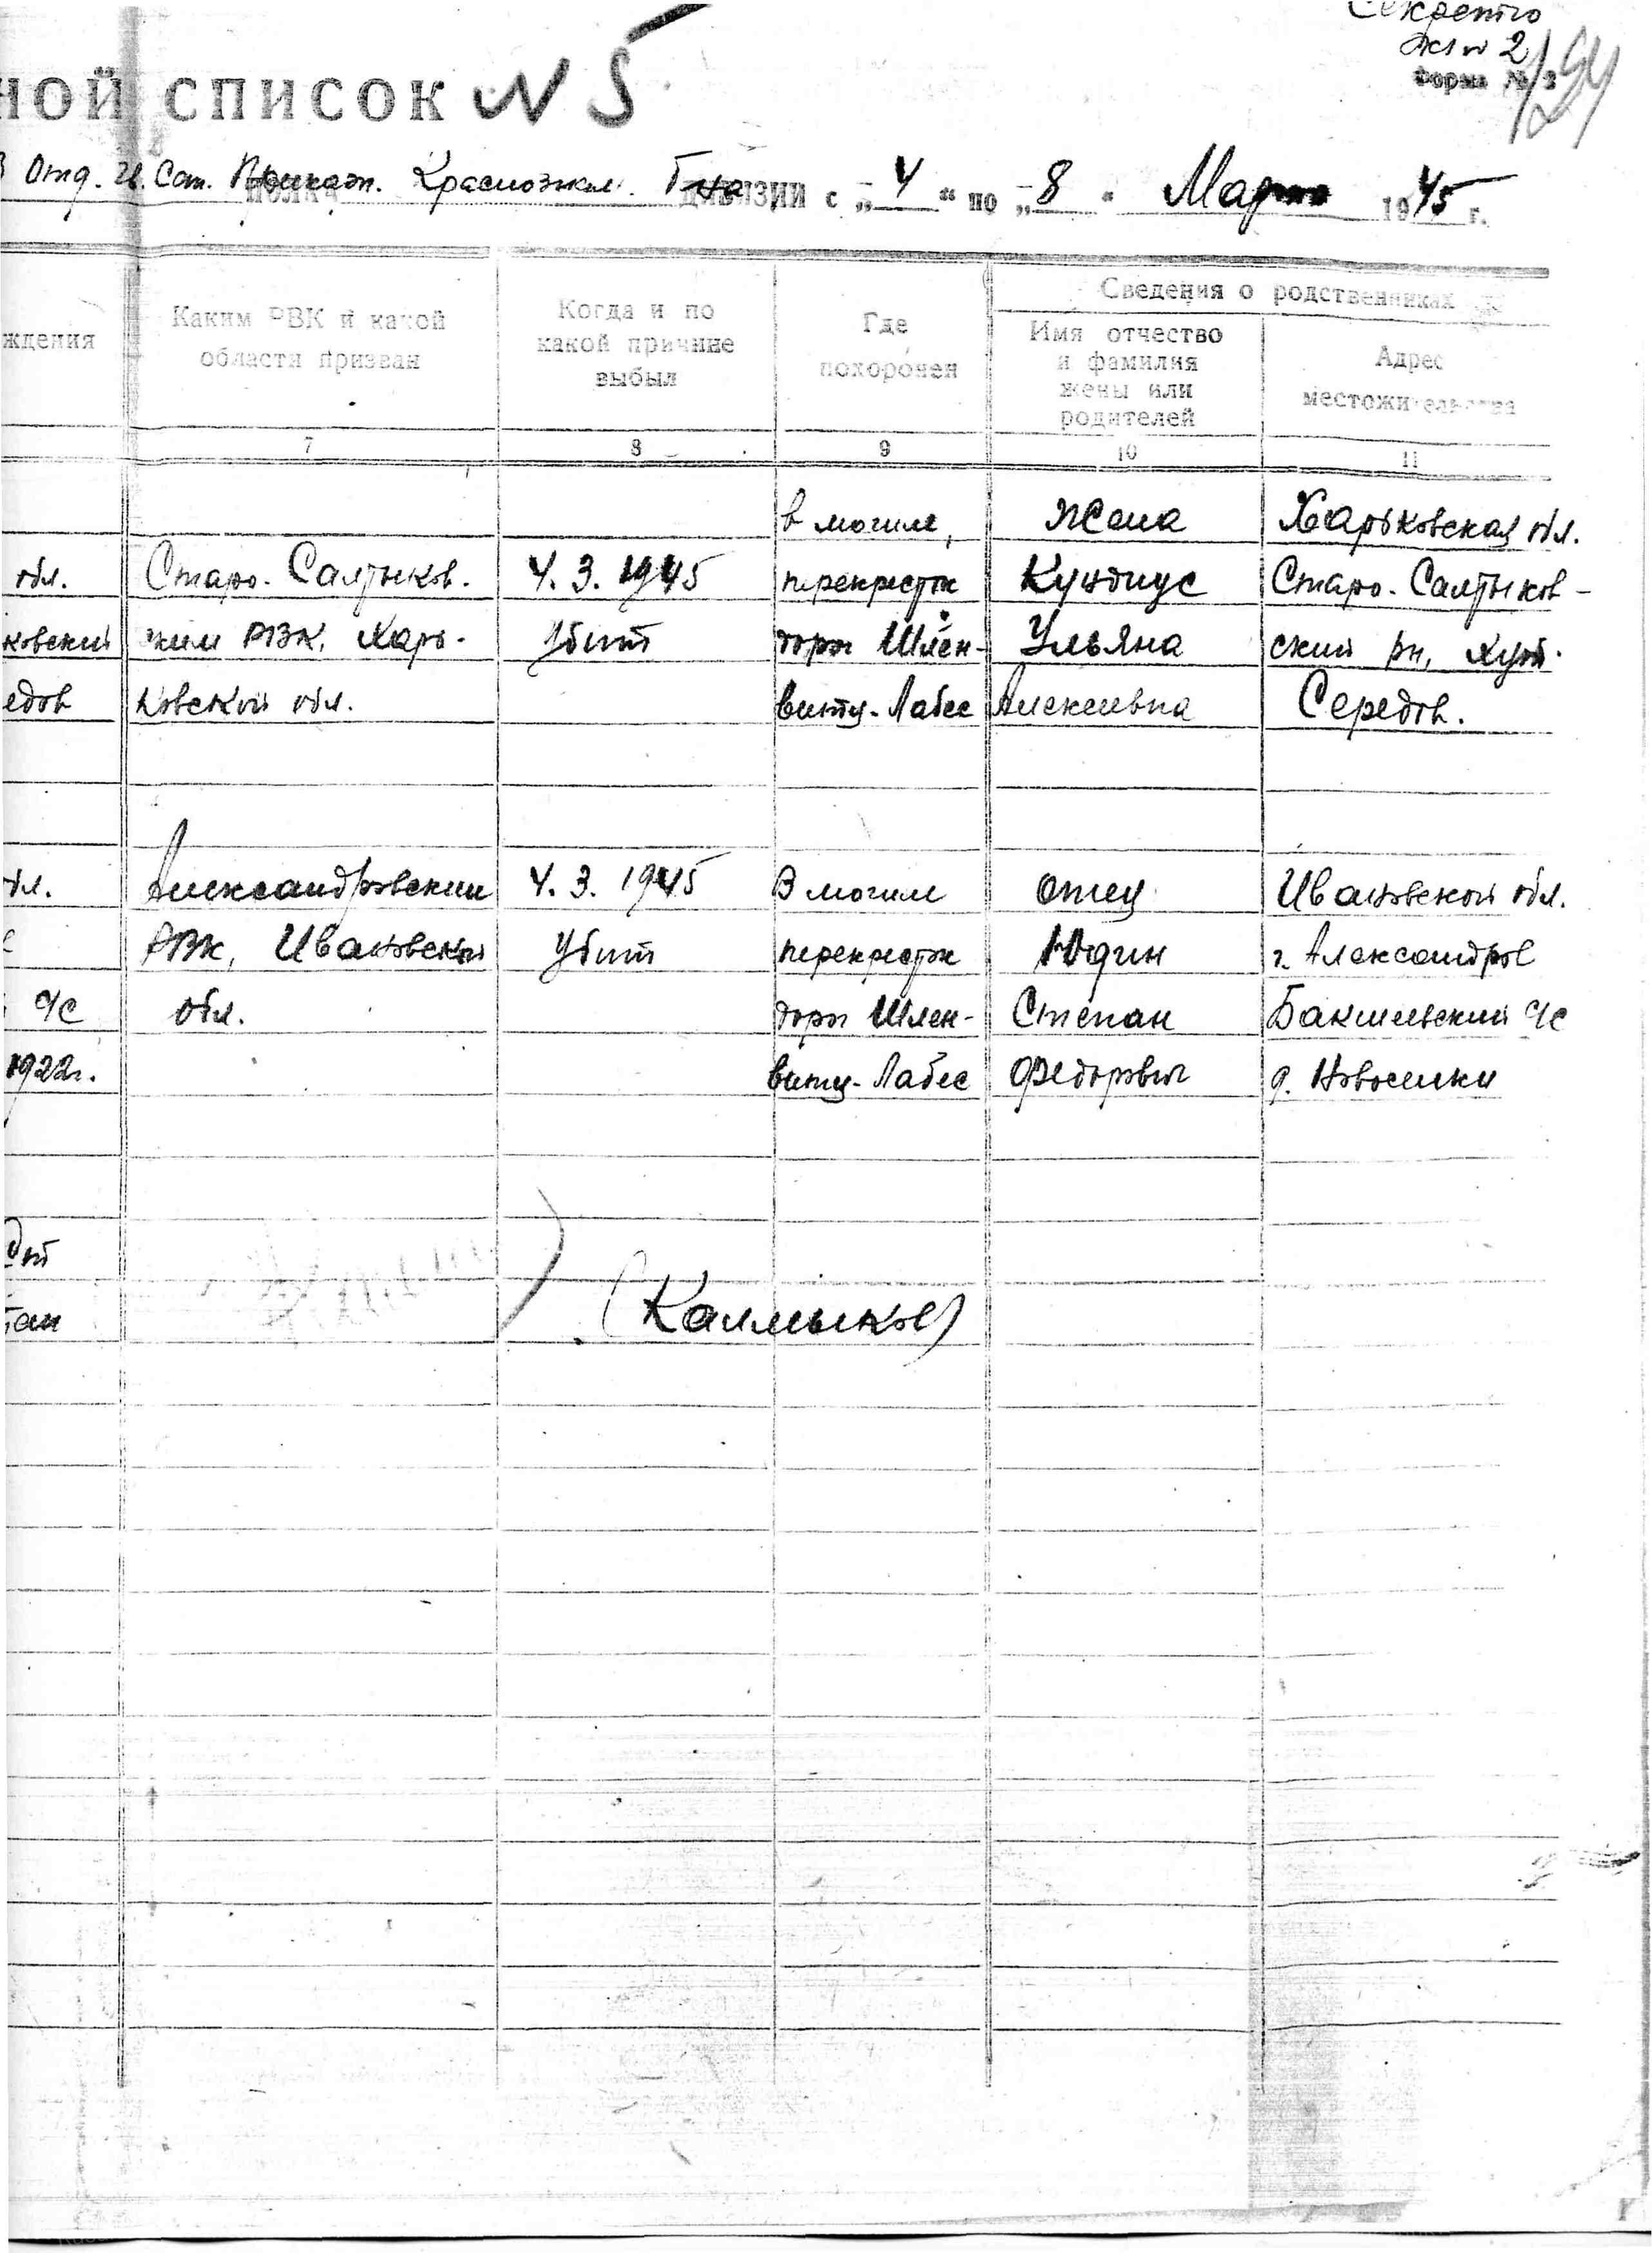 Секретно
экз № 2
Форма № 3
ной список N 5
Отд. Гв. Сап. Краснознам. дивизии с „4“ по „8“ Марта 1945 г.
Сведения о родственниках
ждения
Каким РВК и какой
области призван
Когда и по
какой причине
выбыл
Где
похоронен
Имя отчество
и фамилия
жены или
родителей
Адрес
местожительства
7 8 9 10 11
в могиле, Жена Харьковская обл.
обл. Старо-Салтыков. 4.3.1945 перекресток Кундиус Старо-Салтыков-
ковский ским РВК, Харь- Убит дорог Шлен- Ульяна ский рн, хут.
едов ковской обл. витц-Лабес Алексеевна Середов.
обл. Александровский 4.3.1945 В могиле отец Ивановской обл.
РВК, Ивановской Убит перекресток Юдин г. Александров
с/с обл. дорог Шлен- Степан Бакшеевский с/с
1922г. витц-Лабес Федорович д. Новоселки
(Калмыков)